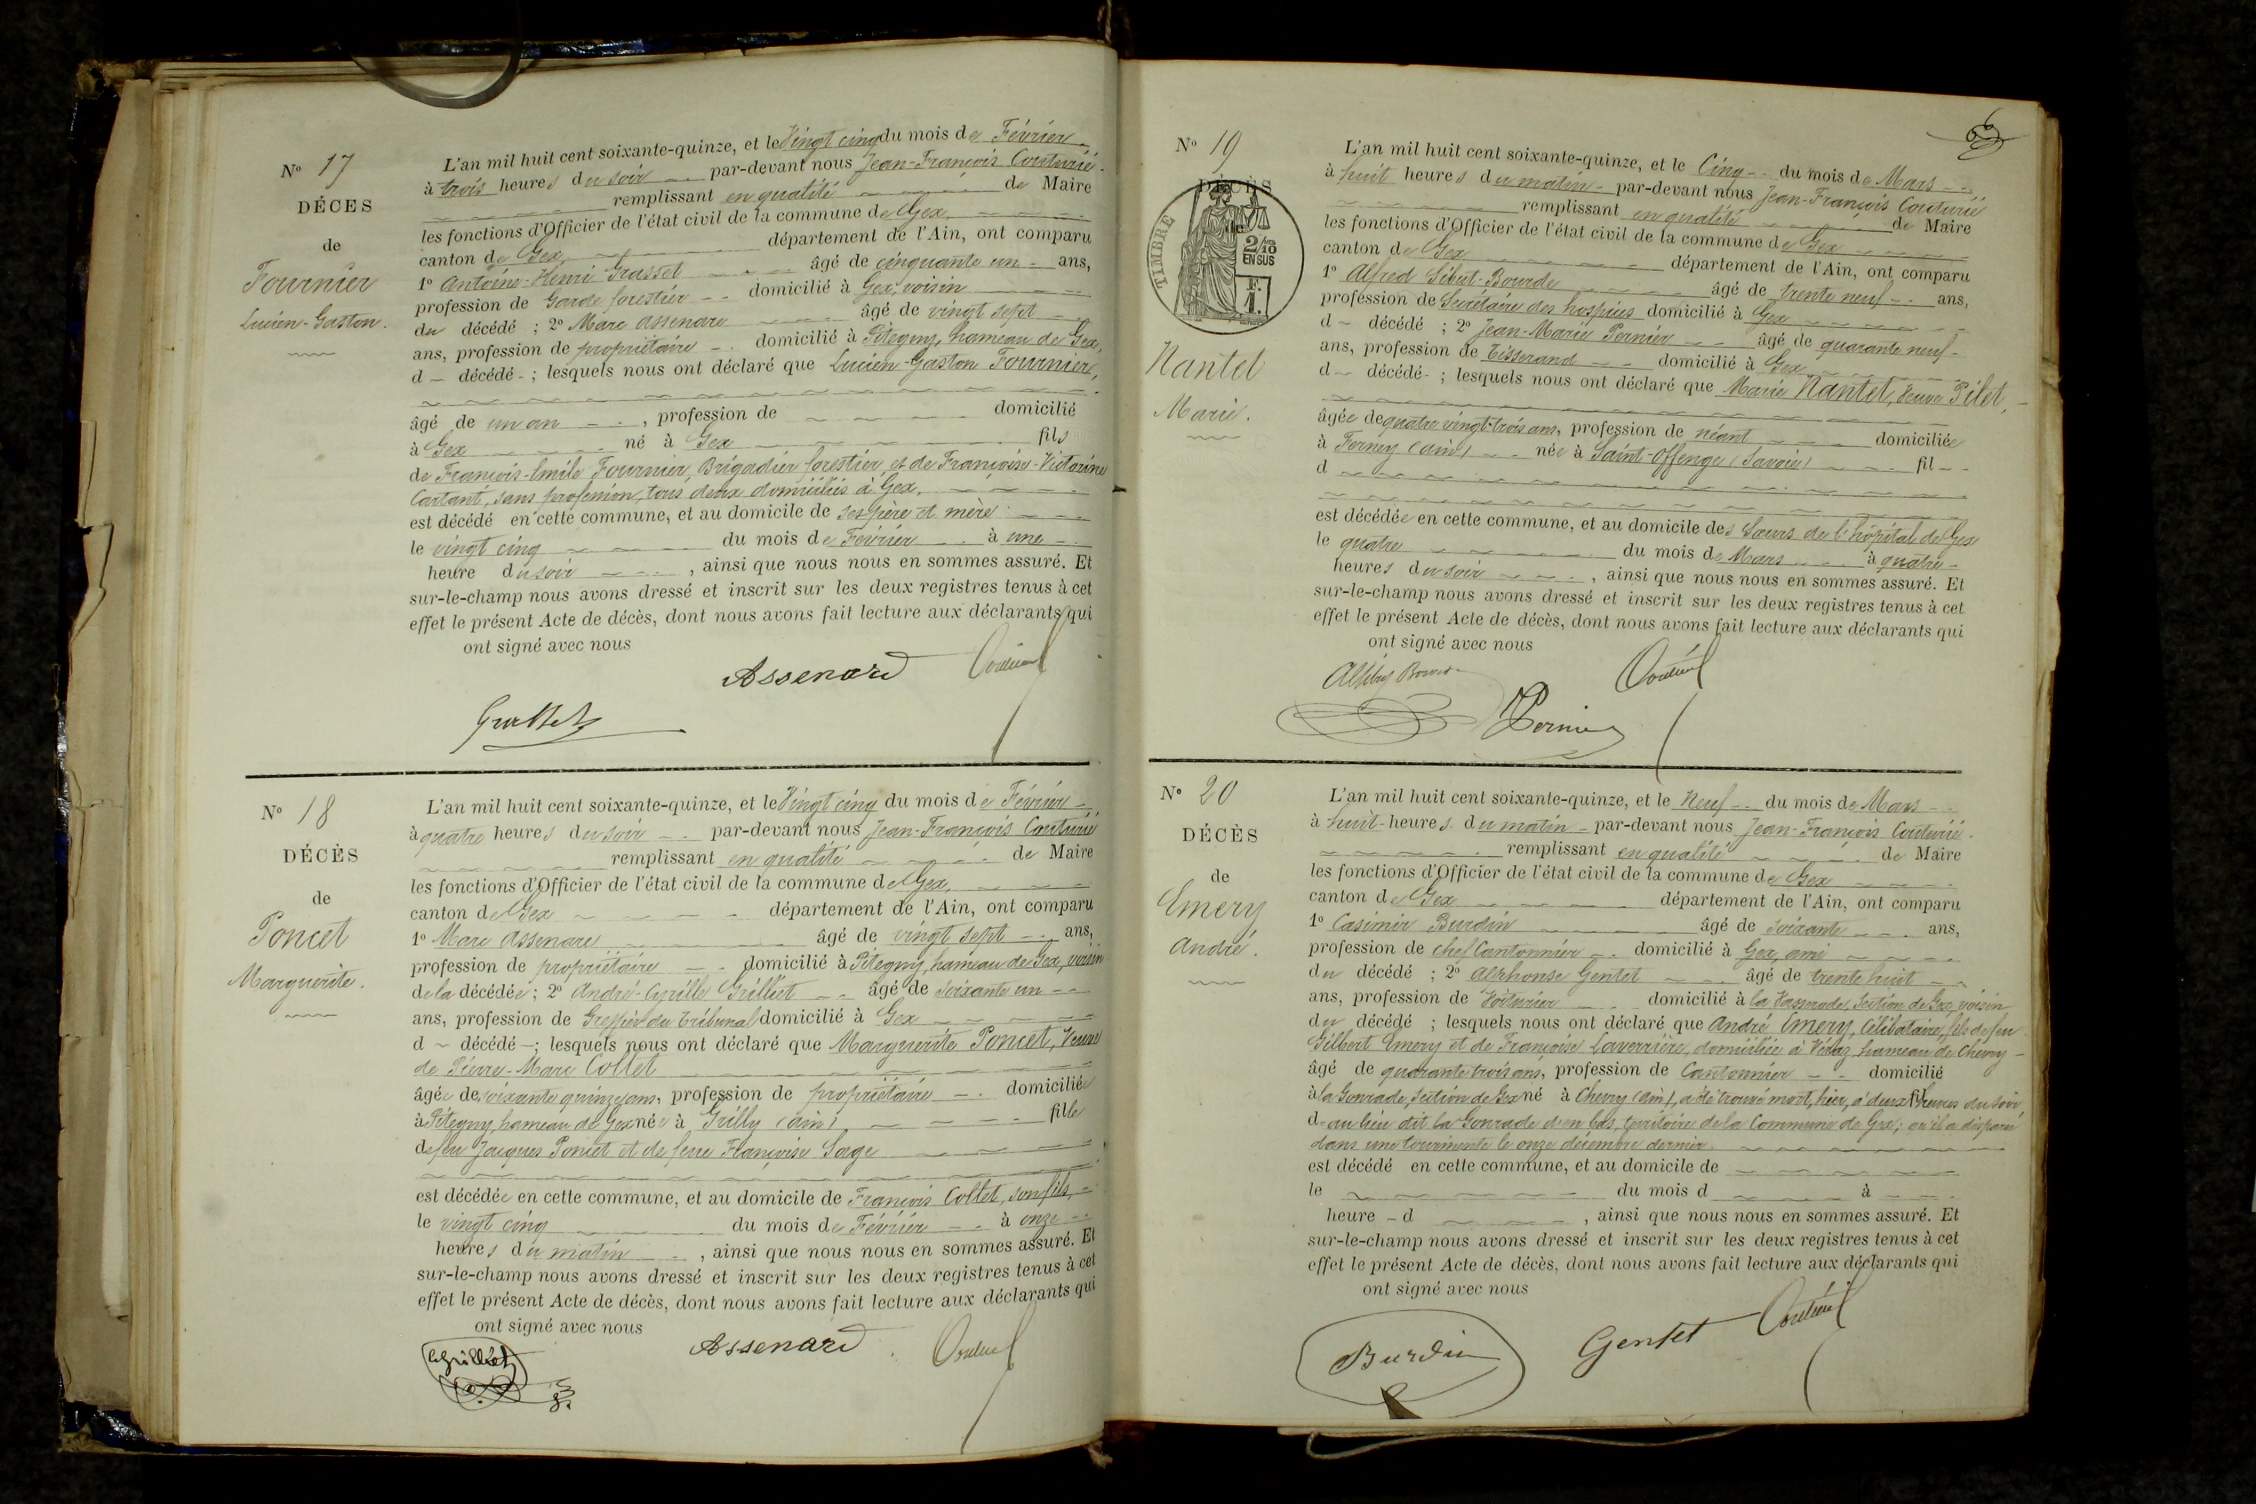 N° 17
DÉCES
de
Fournier
Lucien-Gaston.
L'an mil huit cent soixante-quinze, et le Vingt cinq du mois de Février
à trois heures du soir par-devant nous Jean-François Couturié
remplissant en qualité de Maire
les fonctions d'Officier de l'état civil de la commune de Gex
canton de Gex département de l'Ain, ont comparu
1° Antoine-Henri Grasset âgé de cinquante un ans,
profession de Garde forestier domicilié à Gex, voisin
du décédé ; 2° Marc Assenare âgé de vingt sept
ans, profession de propriétaire domicilié à Pitegny, hameau de Gex,
d décédé ; lesquels nous ont déclaré que Lucien-Gaston Fournier,
âgé de un an , profession de domicilié
à Gex né à Gex fils
de François-Emile Fournier, Brigadier forestier et de Françoise-Victorine
sans profession, tous deux domiciliés à Gex,
est décédé en cette commune, et au domicile de ses père et mère
le vingt cinq du mois de Février à une
heure du soir , ainsi que nous nous en sommes assuré. Et
sur-le-champ nous avons dressé et inscrit sur les deux registres tenus à cet
effet le présent Acte de décès, dont nous avons fait lecture aux déclarants qui
ont signé avec nous
Assenard Couturié
Grasset
N° 18
DÉCÈS
de
Poncet
Marguerite.
L'an mil huit cent soixante-quinze, et le Vingt cinq du mois de Février
à quatre heures du soir par-devant nous Jean-François Couturié
remplissant en qualité de Maire
les fonctions d'Officier de l'état civil de la commune de Gex,
canton de Gex département de l'Ain, ont comparu
1° Marc Assenare âgé de vingt sept ans,
profession de propriétaire domicilié à Pitegny, hameau de Gex, voisin
de la décédée ; 2° André-Cyrille Grilliet âgé de soixante un
ans, profession de Greffier du Tribunal domicilié à Gex
d décédé ; lesquels nous ont déclaré que Marguerite Poncet, Veuve
de Pierre-Marc Collet
âgée de soixante quinze ans, profession de propriétaire domiciliée
à Pitegny, hameau de Gex née à Grilly (ain) fille
de feu Jacques Poncet et de feue Françoise Sage
est décédée en cette commune, et au domicile de François Collet, son fils,
le vingt cinq du mois de Février à onze
heures du matin , ainsi que nous nous en sommes assuré. Et
sur-le-champ nous avons dressé et inscrit sur les deux registres tenus à cet
effet le présent Acte de décès, dont nous avons fait lecture aux déclarants qui
ont signé avec nous
Grilliet Assenard Couturié
N° 19
DÉCÈS
TIMBRE
2/10
EN SUS
F.
1.
Nantet
Marie.
L'an mil huit cent soixante-quinze, et le Cinq du mois de Mars
à huit heures du matin par-devant nous Jean-François Couturié
remplissant en qualité de Maire
les fonctions d'Officier de l'état civil de la commune de Gex
canton de Gex département de l'Ain, ont comparu
1° Alfred Sibut-Bourde âgé de trente neuf ans,
profession de Secrétaire des hospices domicilié à Gex
d décédé ; 2° Jean-Marie Pernier âgé de quarante neuf
ans, profession de Tisserand domicilié à Gex
d décédé ; lesquels nous ont déclaré que Marie Nantet, Veuve Pilet,
âgée de quatre vingt-trois ans, profession de néant domiciliée
à Ferney (ain) née à Saint-Offenge (Savoie) fil
d
est décédée en cette commune, et au domicile des Sœurs de l'hôpital de Gex
le quatre du mois de Mars à quatre
heures du soir , ainsi que nous nous en sommes assuré. Et
sur-le-champ nous avons dressé et inscrit sur les deux registres tenus à cet
effet le présent Acte de décès, dont nous avons fait lecture aux déclarants qui
ont signé avec nous
Couturié
Pernier
N° 20
DÉCÈS
de
Emery
André.
L'an mil huit cent soixante-quinze, et le Neuf du mois de Mars
à huit heures du matin par-devant nous Jean-François Couturié
remplissant en qualité de Maire
les fonctions d'Officier de l'état civil de la commune de Gex
canton de Gex département de l'Ain, ont comparu
1° Casimir Burdin âgé de soixante ans,
profession de chef Cantonnier domicilié à Gex, ami
du décédé ; 2° Alphonse Gentet âgé de trente huit
ans, profession de Voiturier domicilié à la section de Gex, voisin
du décédé ; lesquels nous ont déclaré que André Emery, Célibataire, fils de feu
Gilbert Emery et de Françoise Laverrière, domiciliée à Véraz, hameau de Chevry
âgé de quarante trois ans, profession de Cantonnier domicilié
à la section de Gex né à Chevry (ain), a été trouvé mort, hier, à deux fil heures du soir
d au lieu dit la d'en bas, territoire de la Commune de Gex; où il a disparu
dans une tourmente le onze décembre dernier
est décédé en cette commune, et au domicile de
le du mois d à
heure d , ainsi que nous nous en sommes assuré. Et
sur-le-champ nous avons dressé et inscrit sur les deux registres tenus à cet
effet le présent Acte de décès, dont nous avons fait lecture aux déclarants qui
ont signé avec nous
Burdin Gentet Couturié